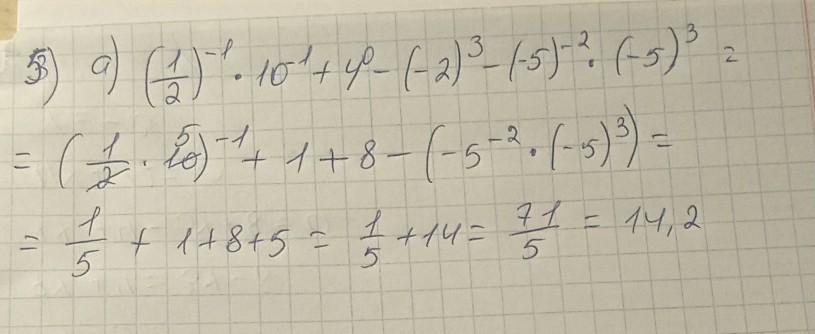 3) а) (1/2)^-1 · 10^-1 + 4^0 - (-2)^3 - (-5)^-2 · (-5)^3 =
= (1/2 · 10)^-1 + 1 + 8 - (-5^-2 · (-5)^3) =
= 1/5 + 1 + 8 + 5 = 1/5 + 14 = 71/5 = 14,2